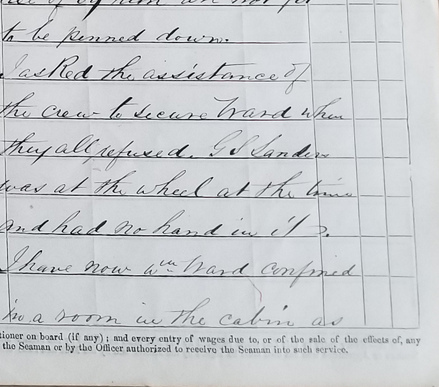 of by him are not for
to be penned down.
I asked the assistance of
the crew to secure Ward when
they all refused. G S Sanders
was at the wheel at the time
and had no hand in it.
I have now Wm Ward confined
in a room in the cabin as
tioner on board (if any); and every entry of wages due to, or of the sale of the effects of, any
the Seaman or by the Officer authorized to receive the Seaman into such service.